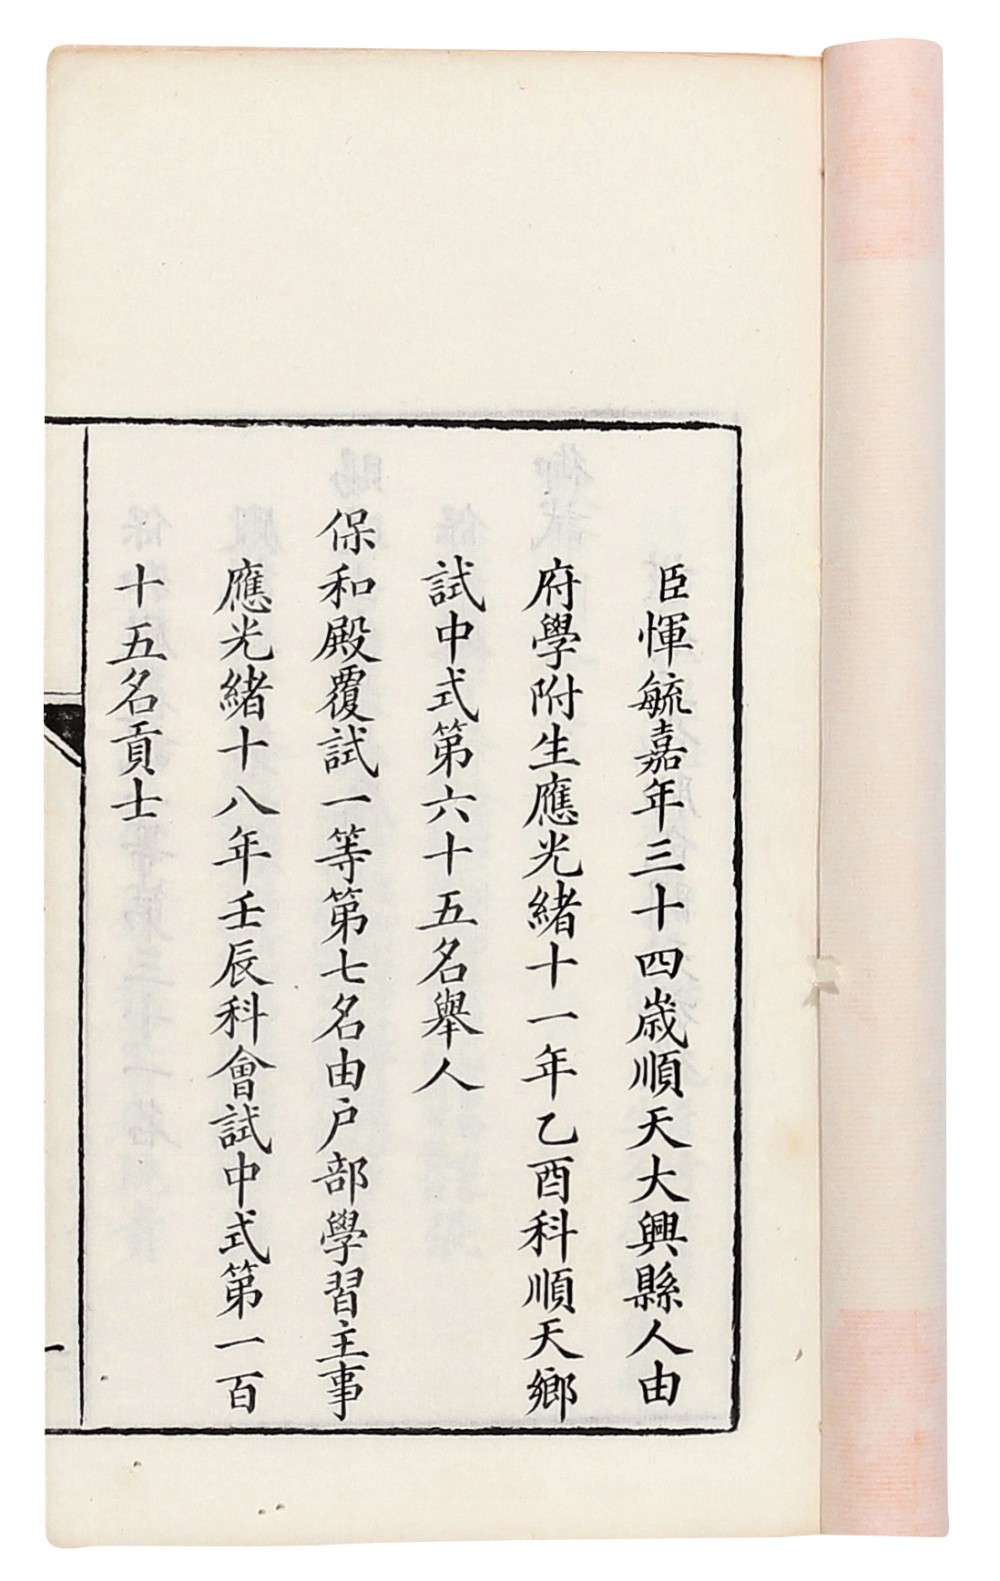 臣惲毓嘉年三十四歲順天大興縣人由
府學附生應光緒十一年乙酉科順天鄉
試中式第六十五名舉人
保和殿覆試一等第七名由户部學習主事
應光緒十八年壬辰科會試中式第一百
十五名貢士